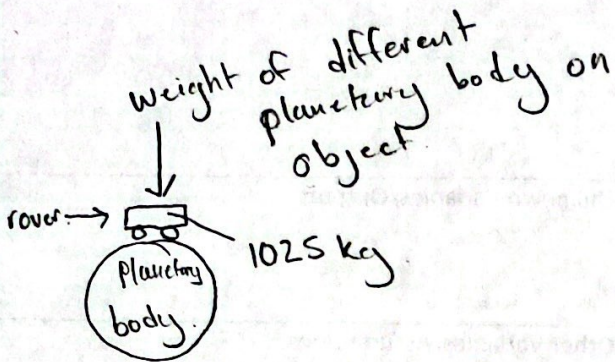 weight of different
planetary body on
object.
rover.
1025 kg.
planetary
body.